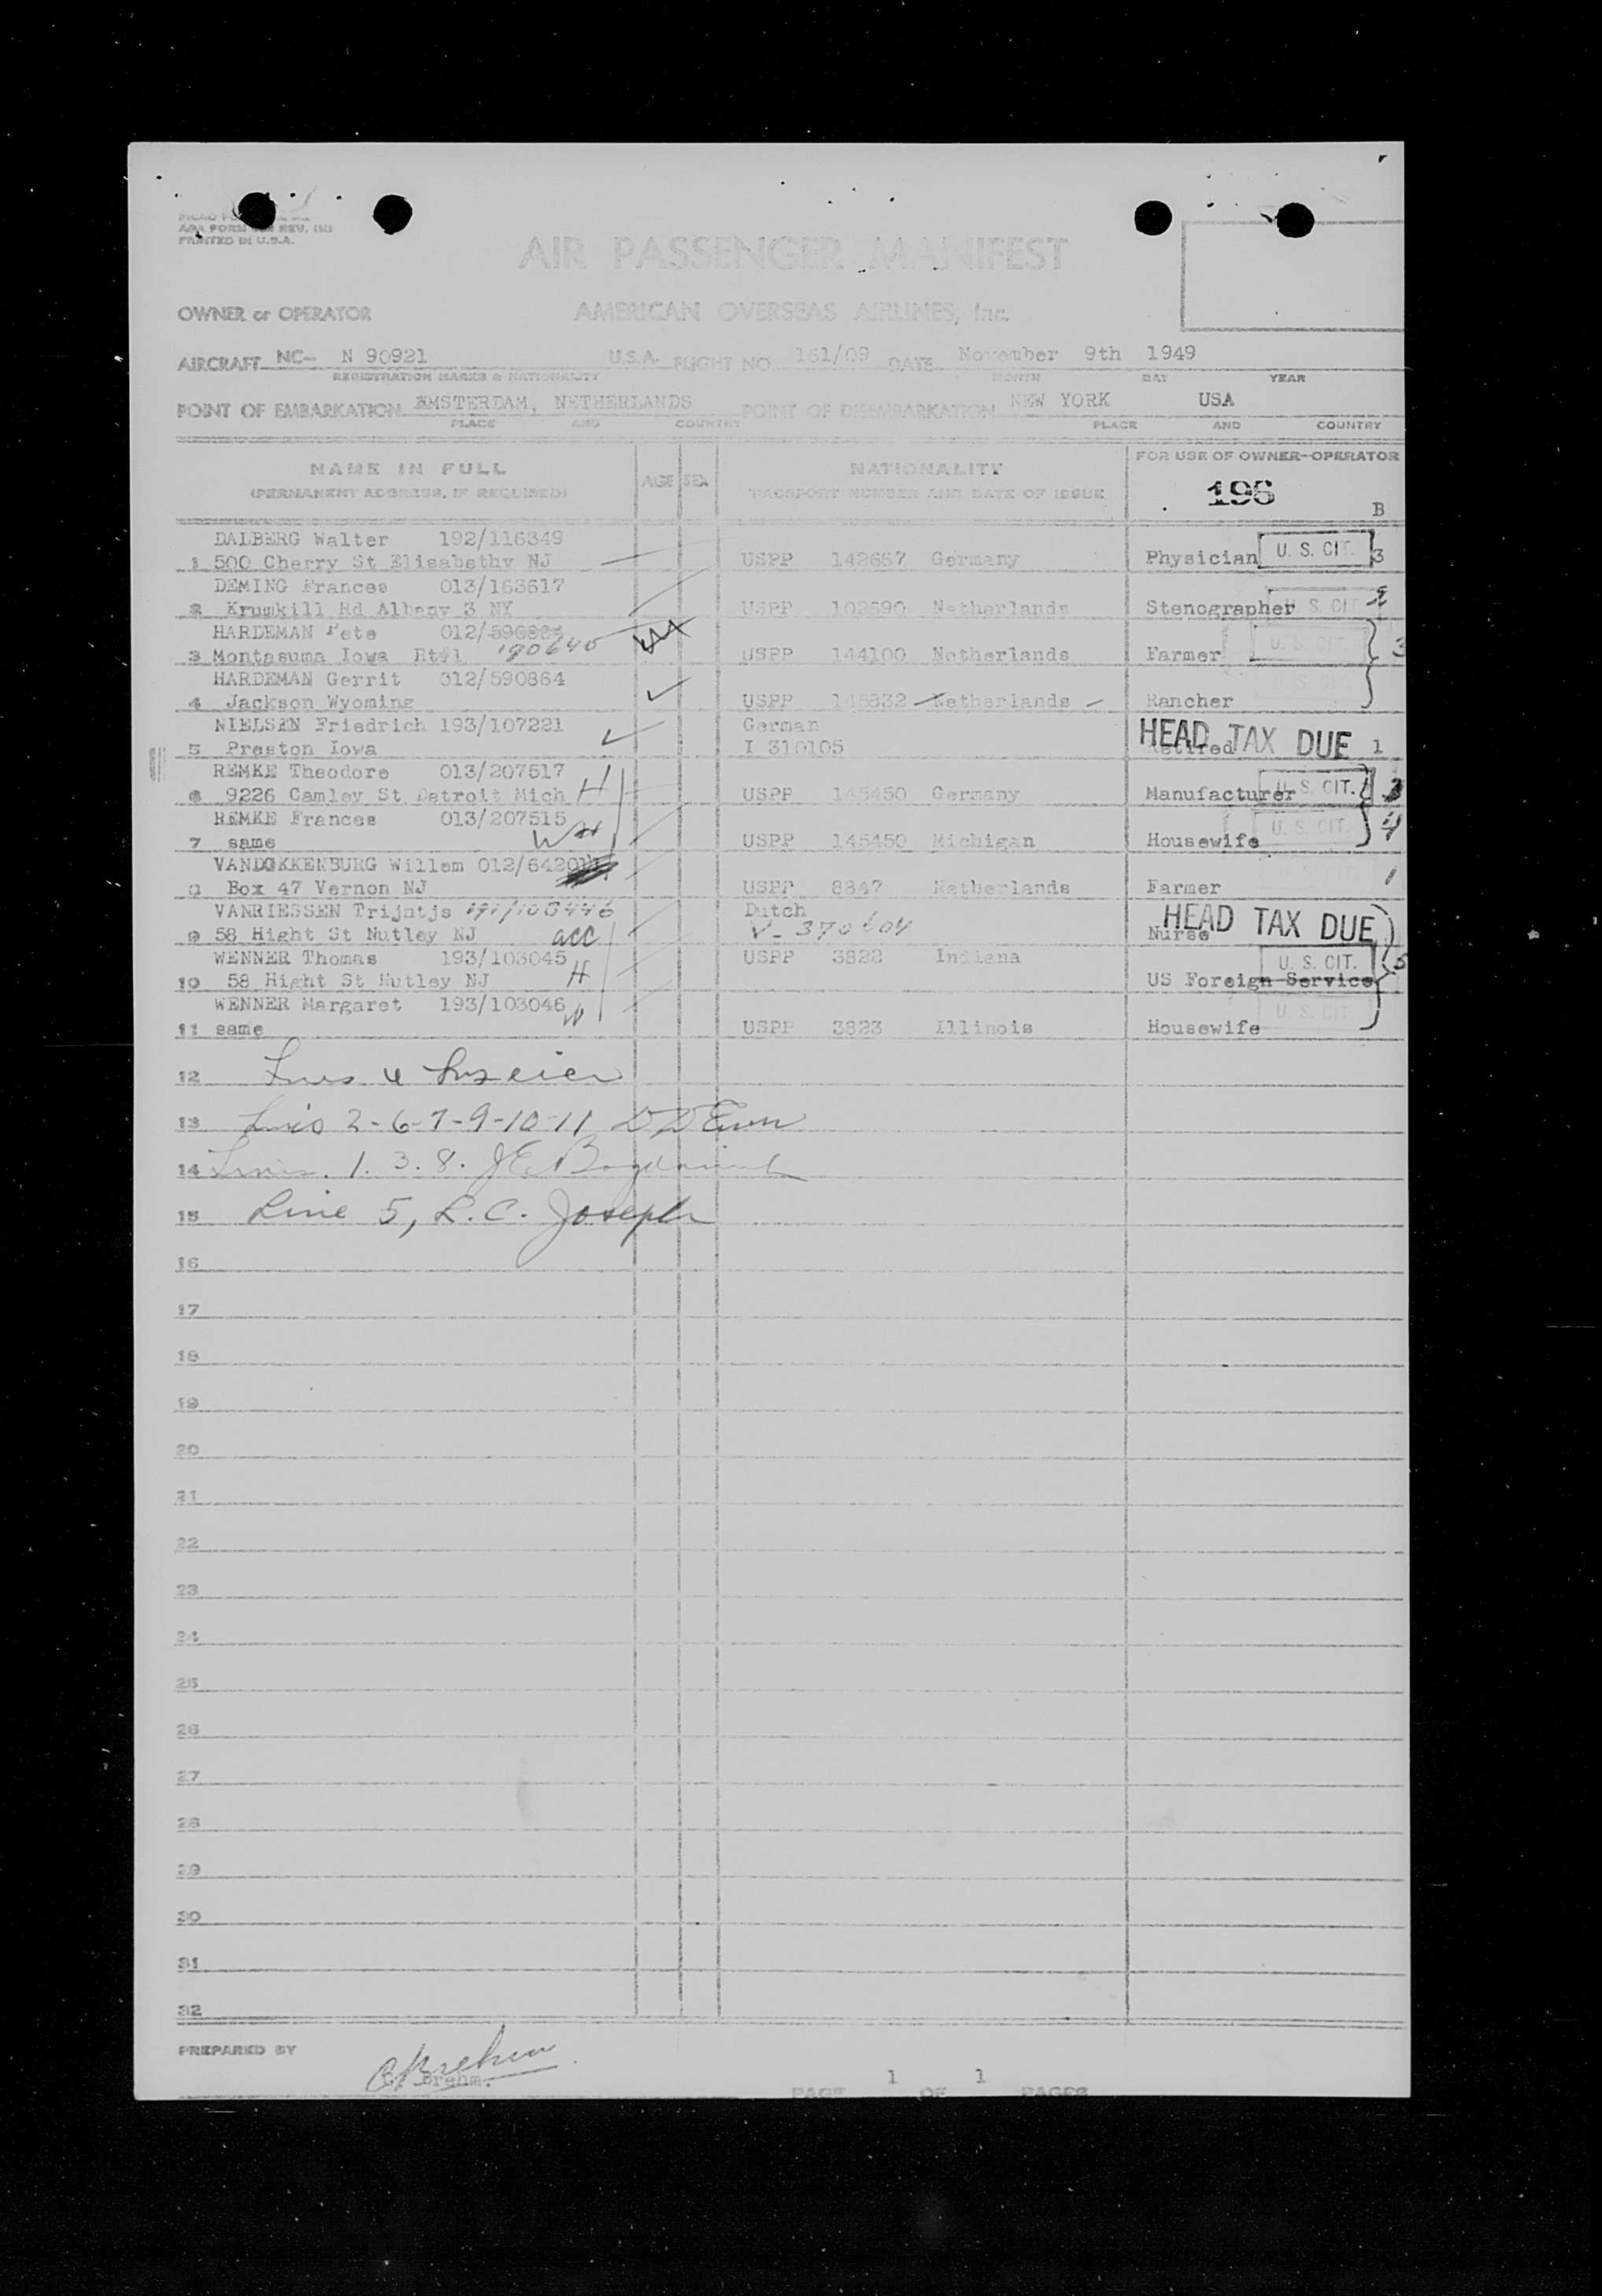 PRINTED IN U.S.A.
AIR PASSENGER MANIFEST
OWNER or OPERATOR AMERICAN OVERSEAS AIRLINES, Inc.
AIRCRAFT NC- N 90921 U.S.A. FLIGHT NO. 161/09 DATE November 9th 1949
REGISTRATION MARKS & NATIONALITY MONTH DAY YEAR
POINT OF EMBARKATION AMSTERDAM, NETHERLANDS POINT OF DISEMBARKATION NEW YORK USA
PLACE AND COUNTRY PLACE AND COUNTRY
NAME IN FULL
(PERMANENT ADDRESS, IF REQUIRED)
AGE SEX
NATIONALITY
PASSPORT NUMBER AND DATE OF ISSUE
FOR USE OF OWNER-OPERATOR
195
B
DALBERG Walter 192/116349
1 500 Cherry St Elisabethv NJ USPP 142667 Germany Physician U. S. CIT. 3
DEMING Frances 013/163617
2 Krumkill Rd Albany 3 NY USPP 102690 Netherlands Stenographer U. S. CIT 2
HARDEMAN Pete 012/590864 190640
3 Montasuma Iowa Rt#1 USPP 144100 Netherlands Farmer U. S. CIT. 3
HARDEMAN Gerrit 012/590864
4 Jackson Wyoming USPP 146332 Netherlands Rancher U. S. CIT
NIELSEN Friedrich 193/107221 German
5 Preston Iowa I 310105 Retired HEAD TAX DUE 1
REMKE Theodore 013/207517
6 9226 Camley St Detroit Mich H USPP 145450 Germany Manufacturer U. S. CIT.
REMKE Frances 013/207515
7 same USPP 145450 Michigan Housewife U. S. CIT. 4
VANDOKKENBURG Willem 012/6420
8 Box 47 Vernon NJ USPP 8847 Netherlands Farmer 1
VANRIESSEN Trijntje Dutch
9 58 Hight St Nutley NJ acc Nurse HEAD TAX DUE
WENNER Thomas 193/103045 USPP 3822 Indiana
10 58 Hight St Nutley NJ H US Foreign Service U. S. CIT. 5
WENNER Margaret 193/103046 W
11 same USPP 3823 Illinois Housewife U. S. CIT.
12 Lines 4
13 Lines 2-6-7-9-10-11
14 Lines. 1. 3. 8. J.E.
15 Line 5, L.C. Joseph
16
17
18
19
20
21
22
23
24
25
26
27
28
29
30
31
32
PREPARED BY
Brehm.
PAGE 1 OF 1 PAGES